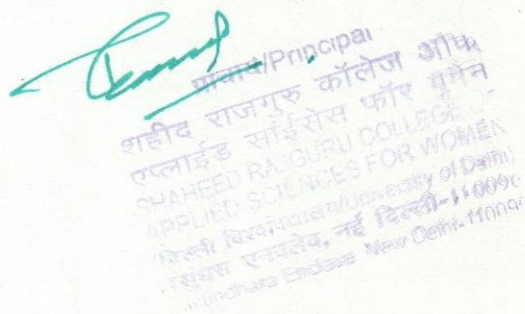 प्राचार्य/Principal
शहीद राजगुरु कॉलेज ऑफ
एप्लाईड साईंसेस फॉर वूमैन
SHAHEED RAJGURU COLLEGE OF
APPLIED SCIENCES FOR WOMEN
(दिल्ली विश्वविद्यालय/University of Delhi)
एनक्लेव, नई दिल्ली-110096
Vasundhara Enclave New Delhi-110096